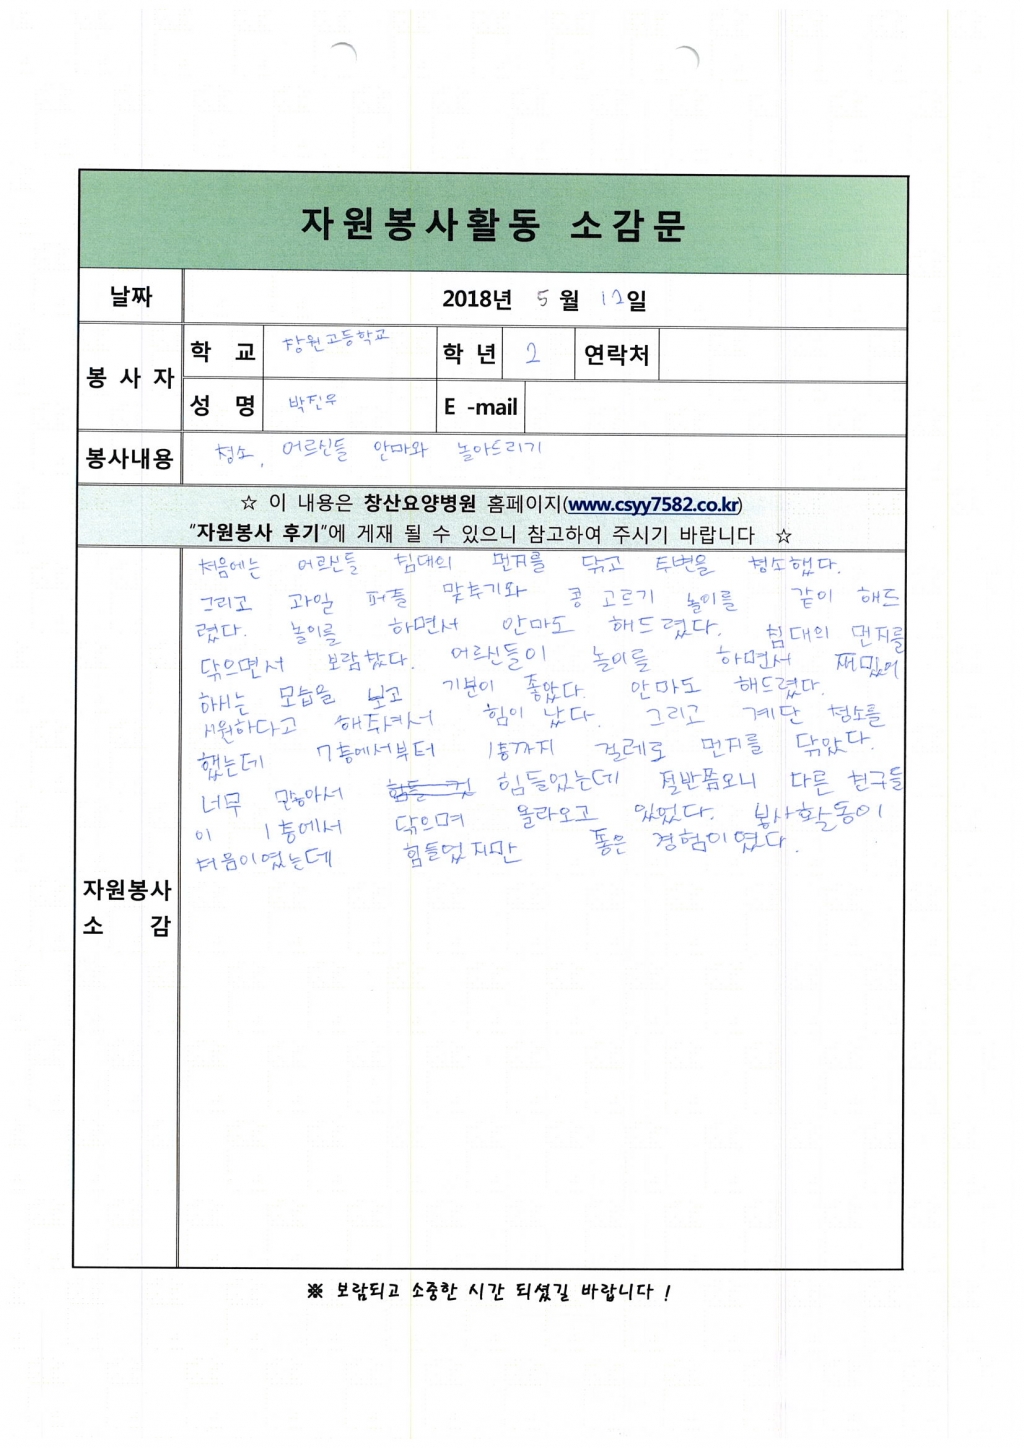 자원봉사활동 소감문
날짜 2018년 5월 12일
봉사자 학교 창원고등학교 학년 2 연락처
성명 박진우 E-mail
봉사내용 청소, 어르신들 안마와 놀아드리기
☆ 이 내용은 창산요양병원 홈페이지(www.csyy7582.co.kr)
"자원봉사 후기"에 게재 될 수 있으니 참고하여 주시기 바랍니다 ☆
자원봉사
소 감
처음에는 어르신들 침대의 먼지를 닦고 주변을 청소했다.
그리고 과일 퍼즐 맞추기와 콩 고르기 놀이를 같이 해드
렸다. 놀이를 하면서 안마도 해드렸다. 침대의 먼지를
닦으면서 보람찼다. 어르신들이 놀이를 하면서 재밌어
하시는 모습을 보고 기분이 좋았다. 안마도 해드렸다.
시원하다고 해주셔서 힘이 났다. 그리고 계단 청소를
했는데 7층에서부터 1층까지 걸레로 먼지를 닦았다.
너무 많아서 힘들었는데 절반쯤오니 다른 친구들
이 1층에서 닦으며 올라오고 있었다. 봉사활동이
처음이였는데 힘들었지만 좋은 경험이였다.
※ 보람되고 소중한 시간 되셨길 바랍니다 !